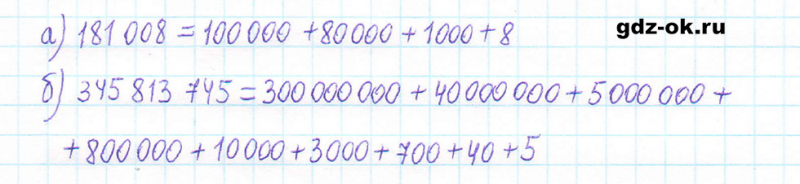 а) 181 008 = 100 000 + 80 000 + 1000 + 8
gdz-ok.ru
б) 345 813 745 = 300 000 000 + 40 000 000 + 5 000 000 +
+ 800 000 + 10 000 + 3000 + 700 + 40 + 5